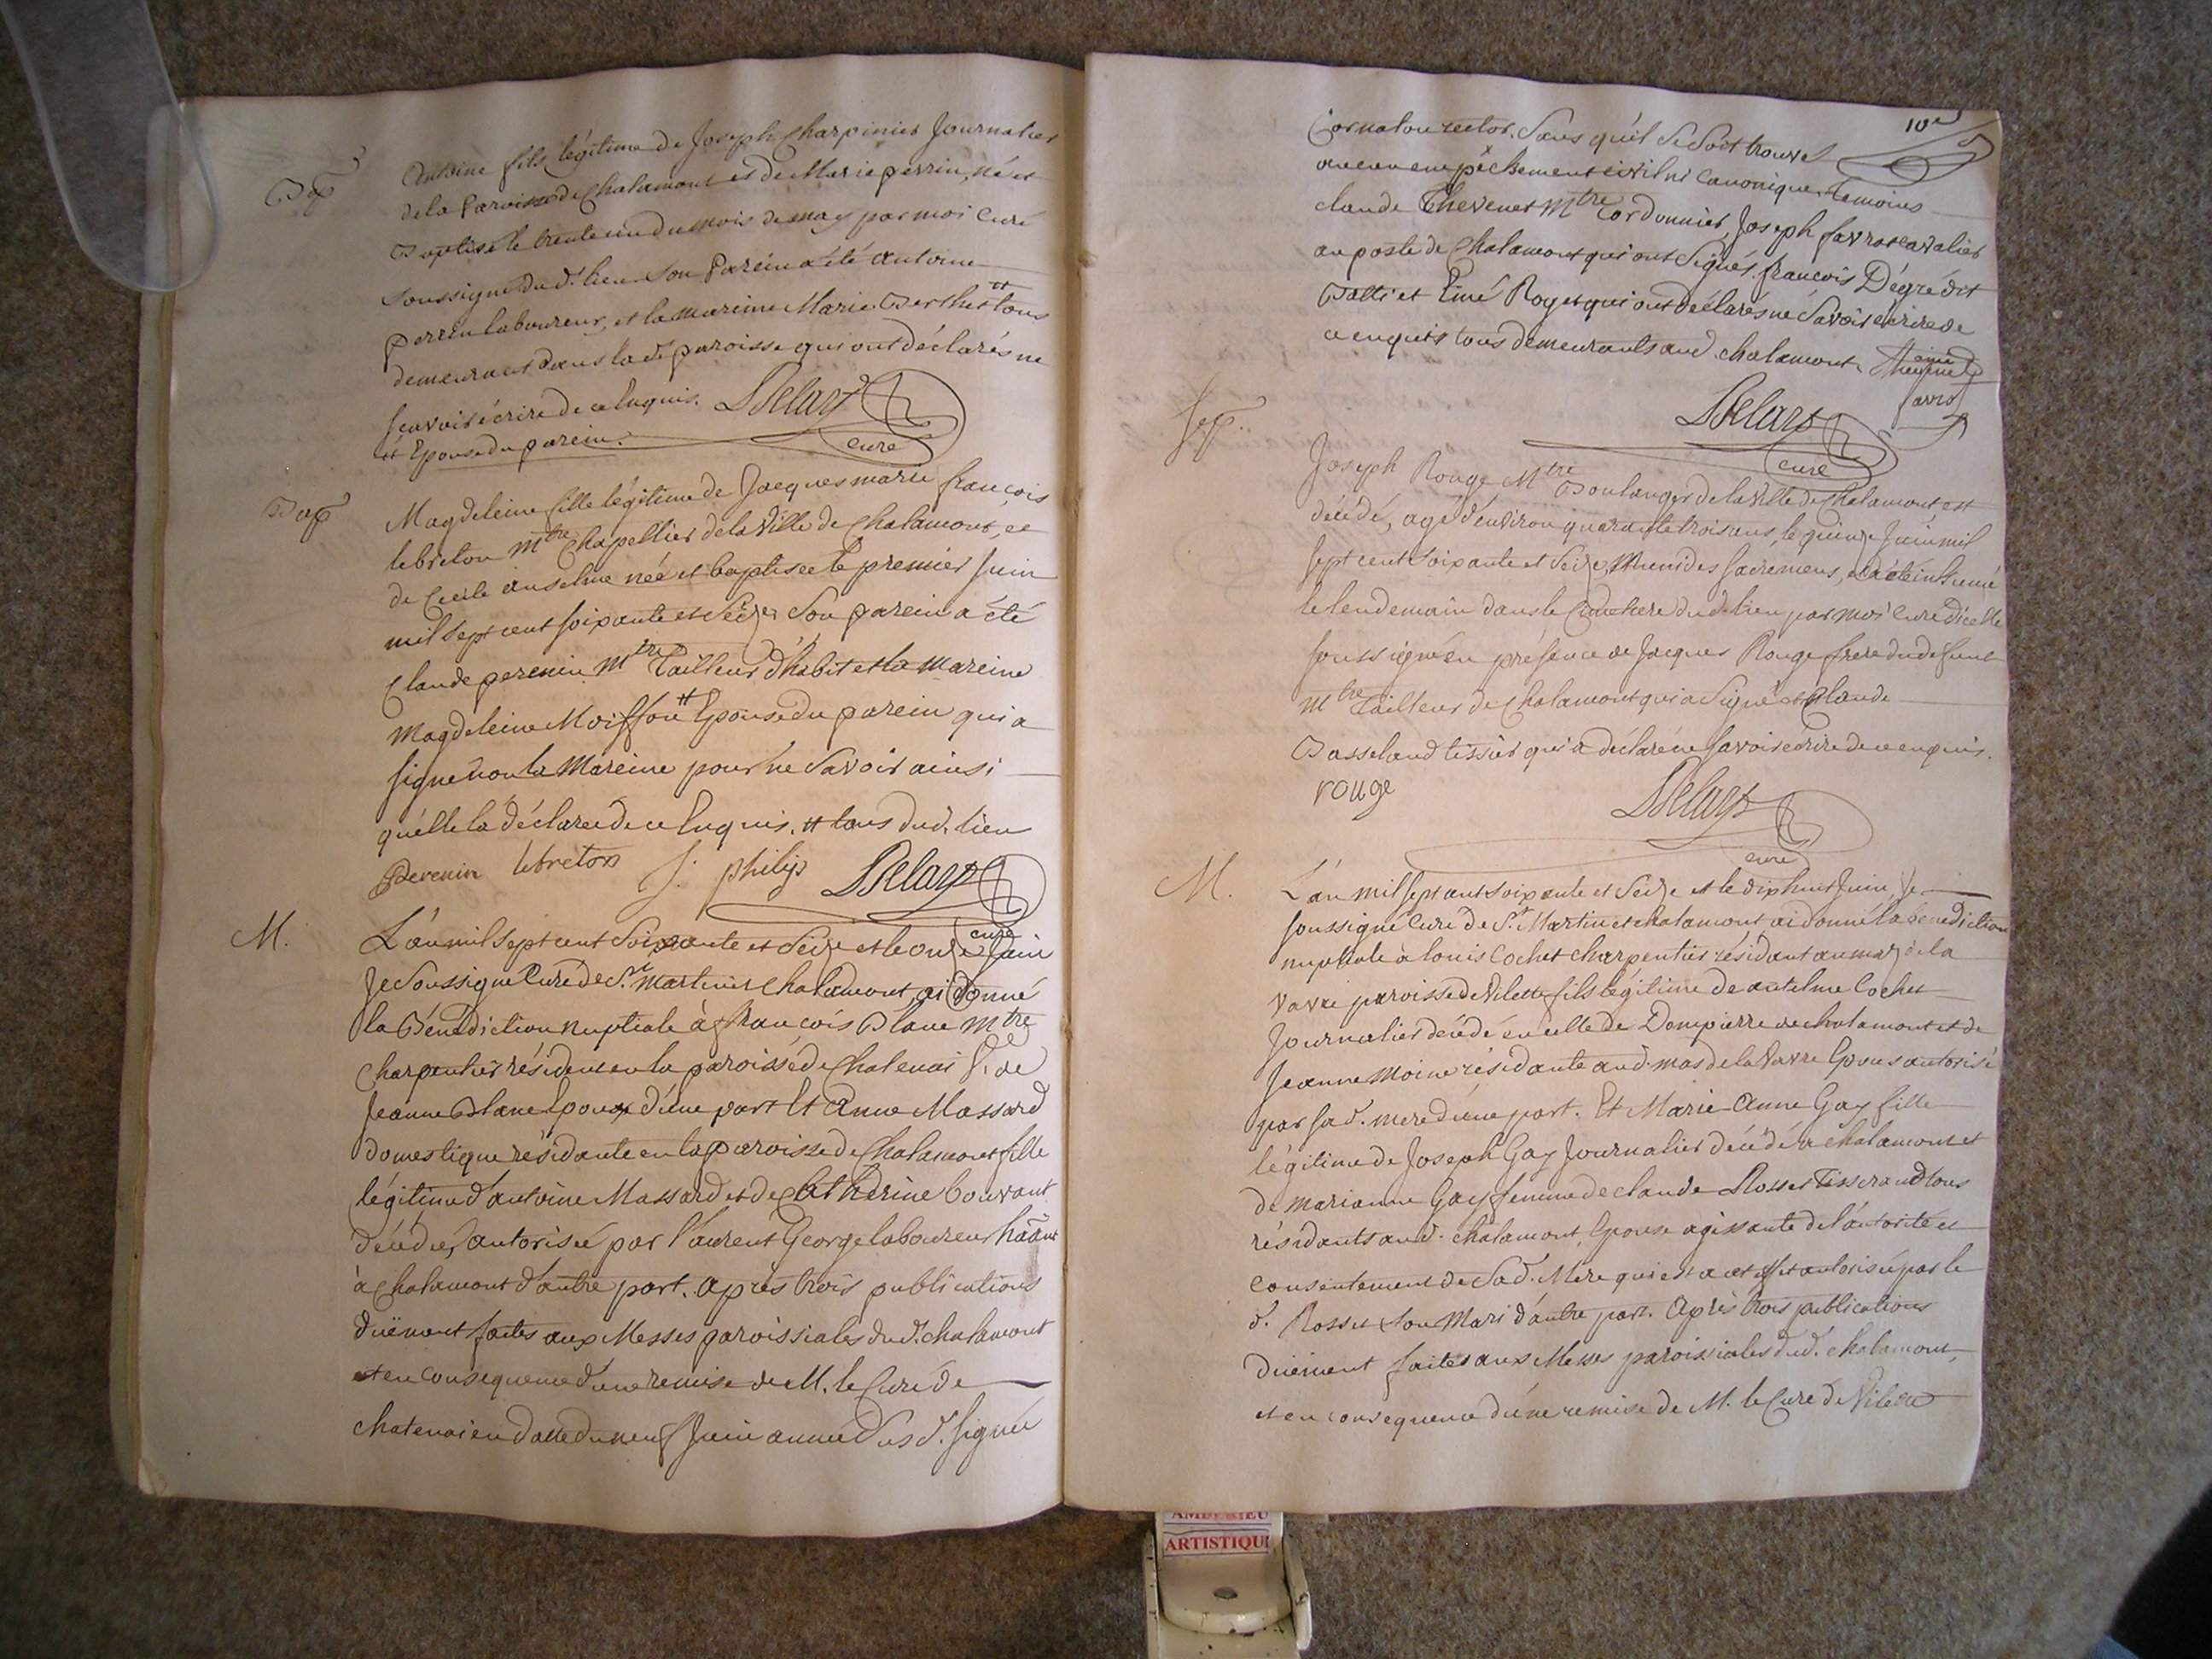 Bap
Antoine fils légitime de Joseph Charpinier Journalier
de la Paroisse de Chalamont et de Marie perrin, né et
Baptisé le trente un du mois de may par moi Curé
soussigné dud. lieu son Parein a été antoine
perrin laboureur, et la mareine Marie Berthet # tous
demeurant dans lad. paroisse qui ont déclarés ne
sçavoir écrire de ce Enquis. Delart
# Epouse du parein. curé
Bap
Magdeleine fille légitime de Jacques marie françois
lebreton Mtre Chapellier de la Ville de Chalamont, et
de Cecile anselme née et baptisée le premier Juin
mil sept cent soixante et seize son parein a été
Claude perenin Mtre Tailleur d'habit et la mareine
Magdeleine Moisson # Epouse du parein qui a
signé non la Mareine pour ne savoir ainsi
qu'elle l'a déclaré de ce Enquis. # tous dud. lieu
Perenin lebreton J. philip Delart
curé
M.
L'an mil sept cent soixante et seize et le onze Juin
Je soussigné Curé de St. Martin et Chalamont, ai donné
la Bénédiction nuptiale à françois Blanc Mtre
Charpentier résident en la paroisse de Chatenai Vf. de
Jeanne Blanc Epoux d'une part Et Anne Massard
domestique résidante en la paroisse de Chalamont fille
légitime d'antoine Massard et de Catherine bouvant
décédés, autorisée par laurent George laboureur hãant
à Chalamont d'autre part. après trois publications
duëment faites aux Messes paroissiales dud. chalamont
et en consequence d'une remise de M. le Curé de
chatenai en datte du neuf Juin année dus d. signée
10e
Cornaton rector. sans qu'il se soit trouvé
aucun empêchement civil ni canonique. temoins
claude Thevenet Mtre Cordonnier, Joseph favrot cavalier
au poste de Chalamont qui ont signés. francois Dégré dit
Balli et Eimé Royer qui ont déclarés ne savoir écrire de
ce enquis tous demeurants aud. chalamont
Thevenet
favrot
Delart
curé
Sep.
Joseph Rouge Mtre Boulanger de la Ville de Chalamont est
décédé, agé d'environ quarante trois ans, le quinze Juin mil
sept cent soixante et seize, Muni des sacremens, et a été inhumé
le lendemain dans le Cimetiere dud. lieu par moi Curé d'icelle
soussigné en présence de Jacques Rouge frere du defunt
Mtre Tailleur de Chalamont qui a signé et Claude
Basseland tissier qui a déclaré ne savoir écrire de ce enquis.
rouge Delart
curé
M.
L'an mil sept cent soixante et seize et le dix huit Juin, Je
soussigné Curé de St. Martin et chalamont, ai donné la bénédiction
nuptiale à louis Cochet charpentier résidant au maz de la
vavre paroisse de Vilette fils légitime de antelme Cochet
Journalier décédé en celle de Dompierre de chalamont et de
Jeanne Moine résidante aud. mas de la Vavre Epoux autorisé
par sad. mere d'une part. Et Marie Anne Gay fille
légitime de Joseph Gay Journalier décédé a chalamont et
de marianne Gay femme de claude Rosset Tisserand tous
résidants aud. chalamont, Epouse agissante de l'autorité et
consentement de sad. Mere qui est a cet effet autorisée par le
d. Rosset son Mari d'autre part. Après trois publications
duëment faites aux Messes paroissiales dud. chalamont,
et en consequence d'une remise de M. le Curé de Vilette
AMBERIEU
ARTISTIQU